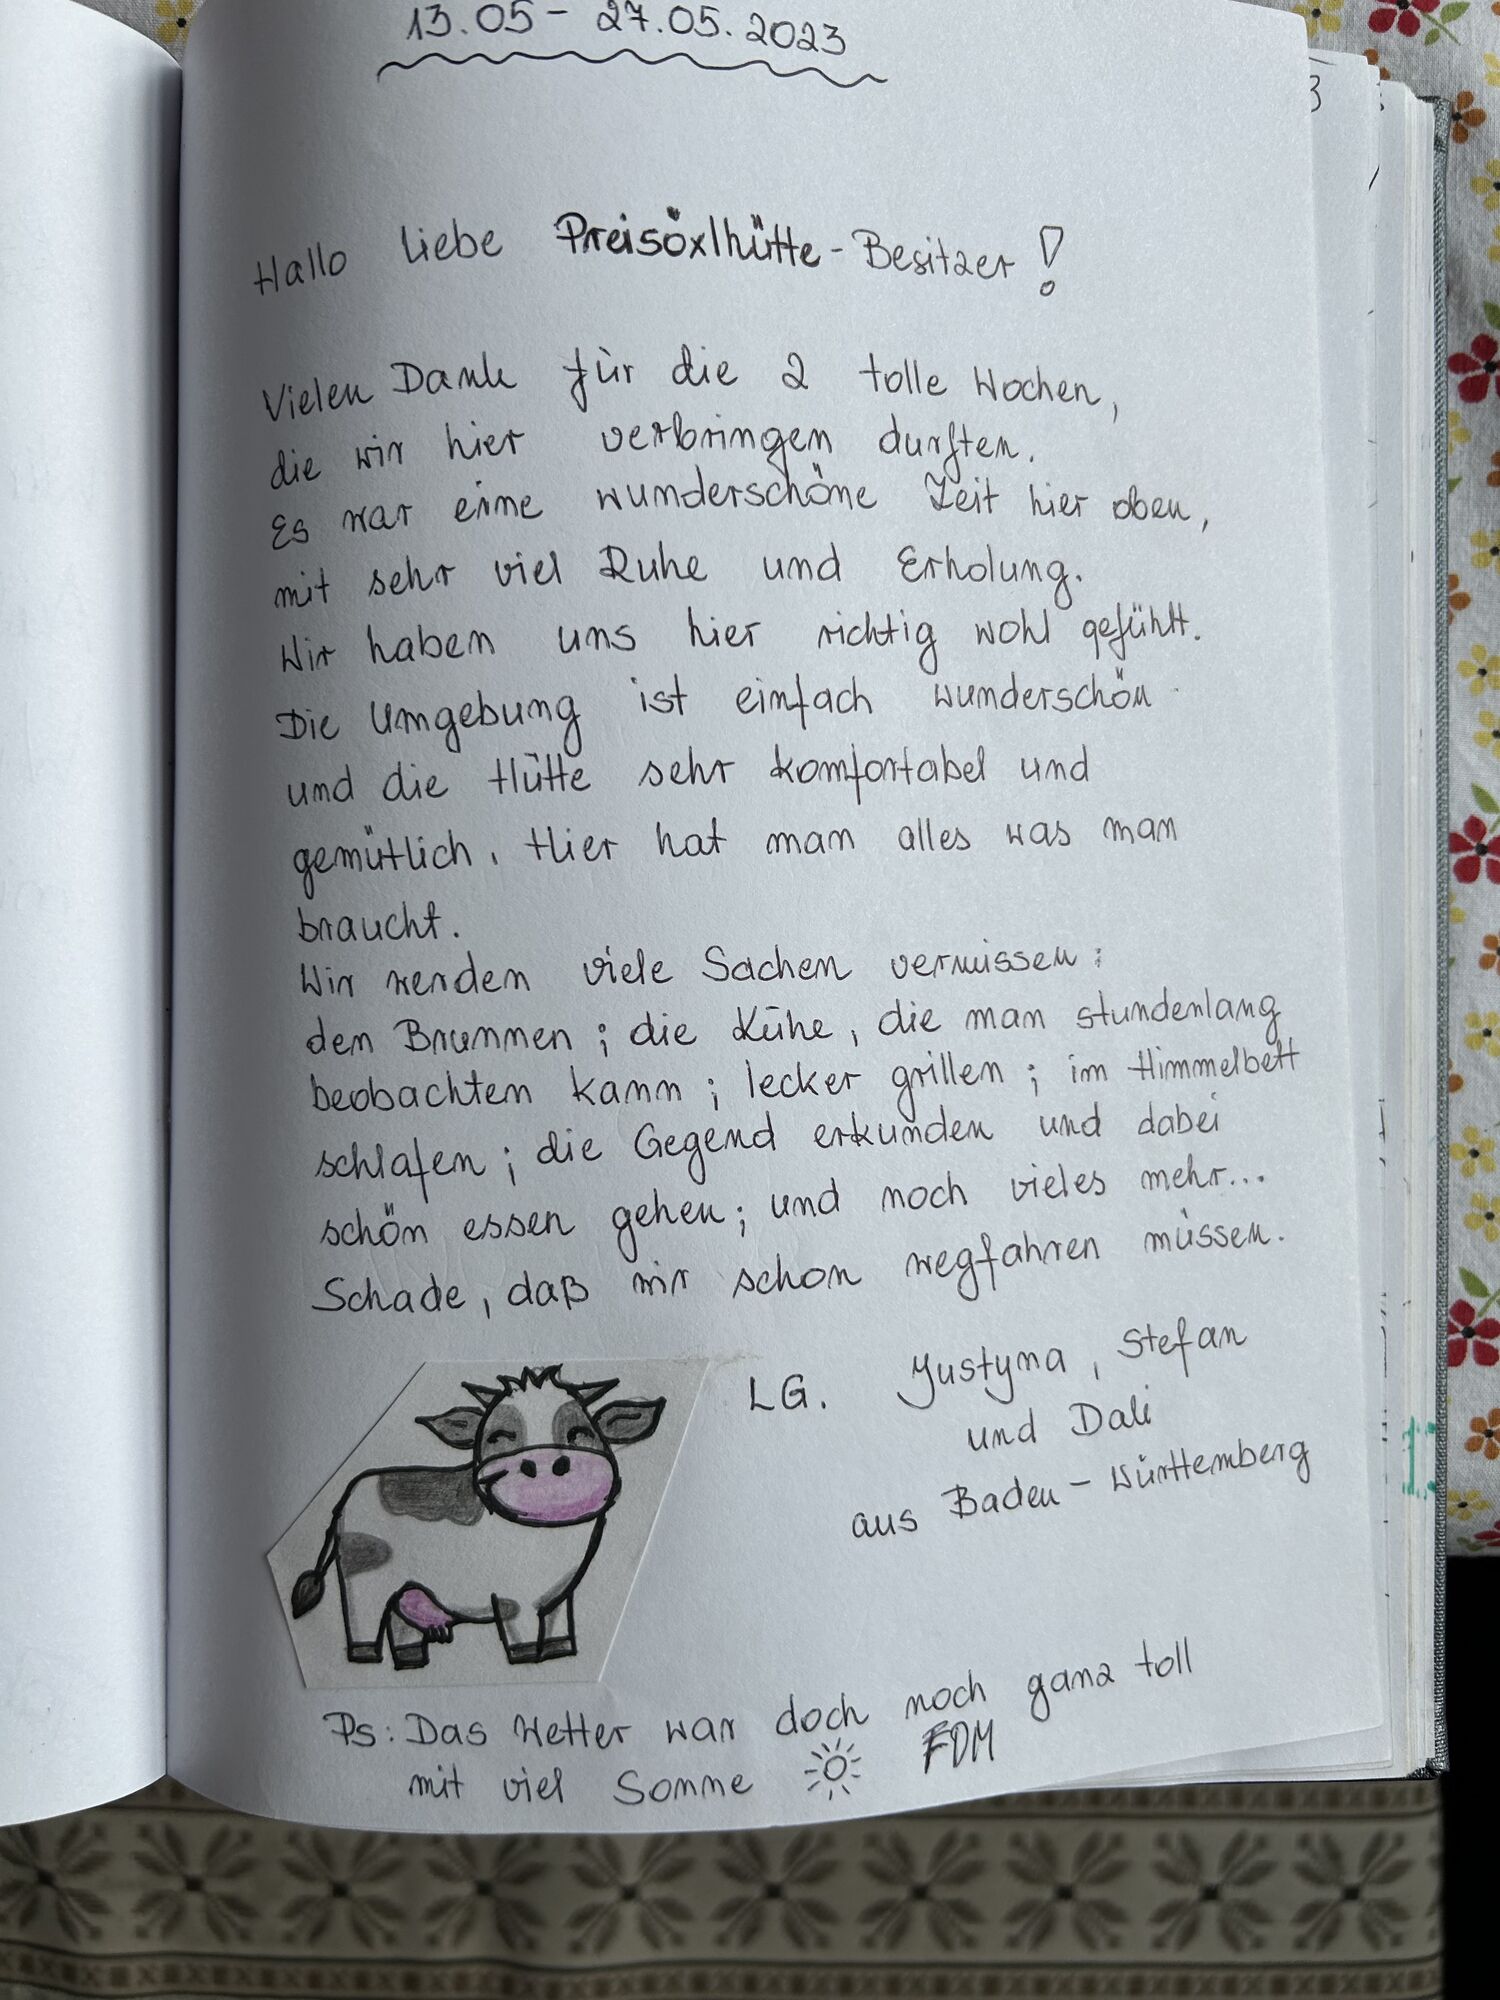 13.05 - 27.05.2023
Hallo liebe Preisöxlhütte - Besitzer!
Vielen Dank für die 2 tolle Wochen,
die wir hier verbringen durften.
Es war eine wunderschöne Zeit hier oben,
mit sehr viel Ruhe und Erholung.
Wir haben uns hier richtig wohl gefühlt.
Die Umgebung ist einfach wunderschön
und die Hütte sehr komfortabel und
gemütlich. Hier hat man alles was man
braucht.
Wir werden viele Sachen vermissen:
den Brunnen; die Kühe, die man stundenlang
beobachten kann; lecker grillen; im Himmelbett
schlafen; die Gegend erkunden und dabei
schön essen gehen; und noch vieles mehr...
Schade, daß wir schon wegfahren müssen.
LG. Justyna, Stefan
und Dali
aus Baden - Württemberg
Ps: Das Wetter war doch noch ganz toll
mit viel Sonne FDM